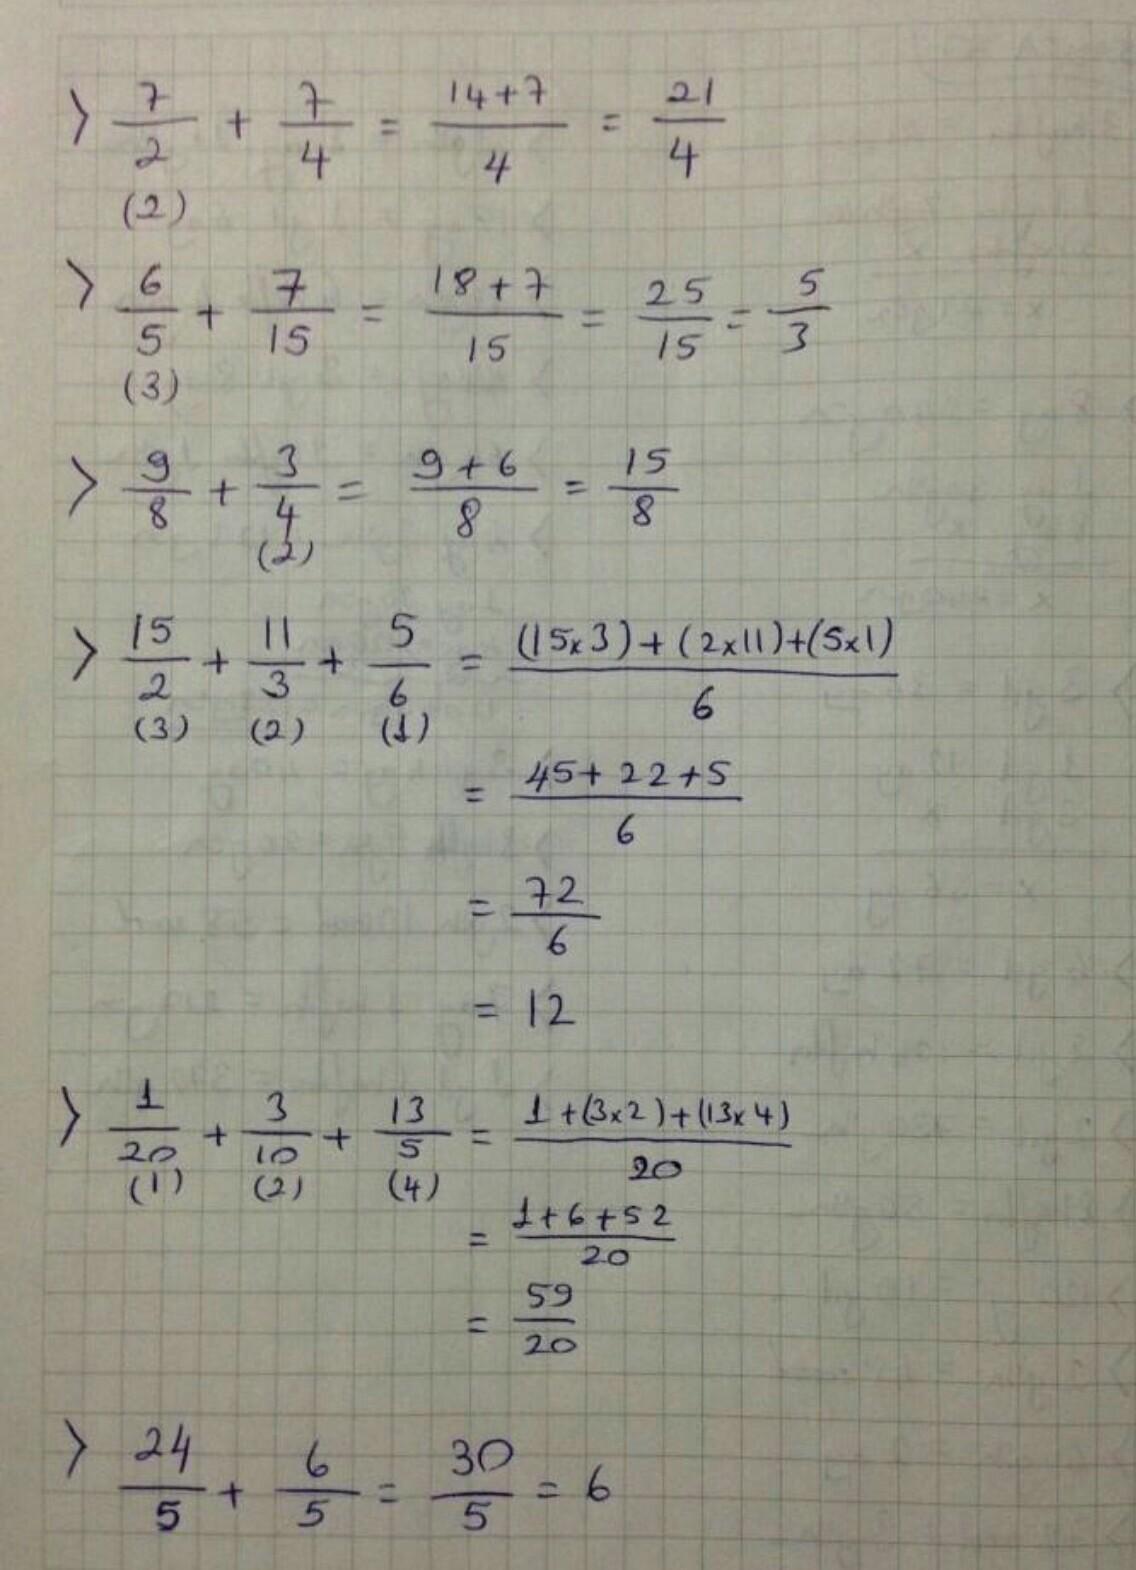 > 7/2 + 7/4 = 14+7/4 = 21/4
(2)
> 6/5 + 7/15 = 18+7/15 = 25/15 = 5/3
(3)
> 9/8 + 3/4 = 9+6/8 = 15/8
(2)
> 15/2 + 11/3 + 5/6 = (15x3)+(2x11)+(5x1)/6
(3) (2) (1)
= 45+22+5/6
= 72/6
= 12
> 1/20 + 3/10 + 13/5 = 1+(3x2)+(13x4)/20
(1) (2) (4)
= 1+6+52/20
= 59/20
> 24/5 + 6/5 = 30/5 = 6